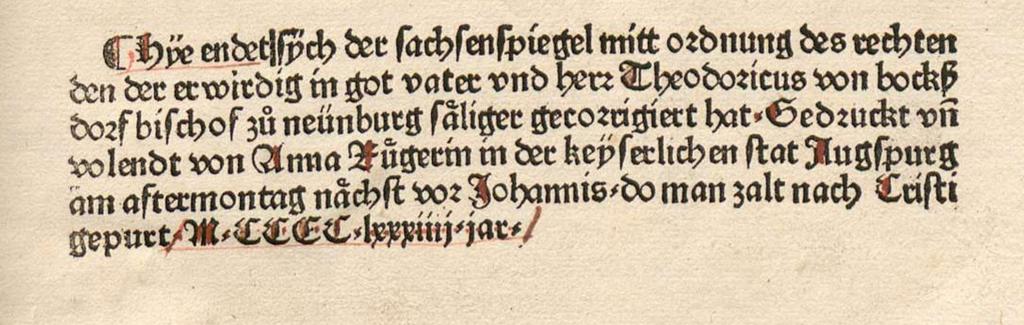 ¶ Hÿe endet sÿch der sachsenspiegel mitt ordnung des rechten
den der erwirdig in got vater vnd herr Theodoricus von bockß
dorf bischof zů neünburg såliger gecorrigiert hat. Gedruckt vn̄
volendt von Anna Růgerin in der keÿserlichen stat Augspurg
am aftermontag nåchst vor Johannis. do man zalt nach Cristi
gepurt. M. CCCC. lxxxiiij. jar. /